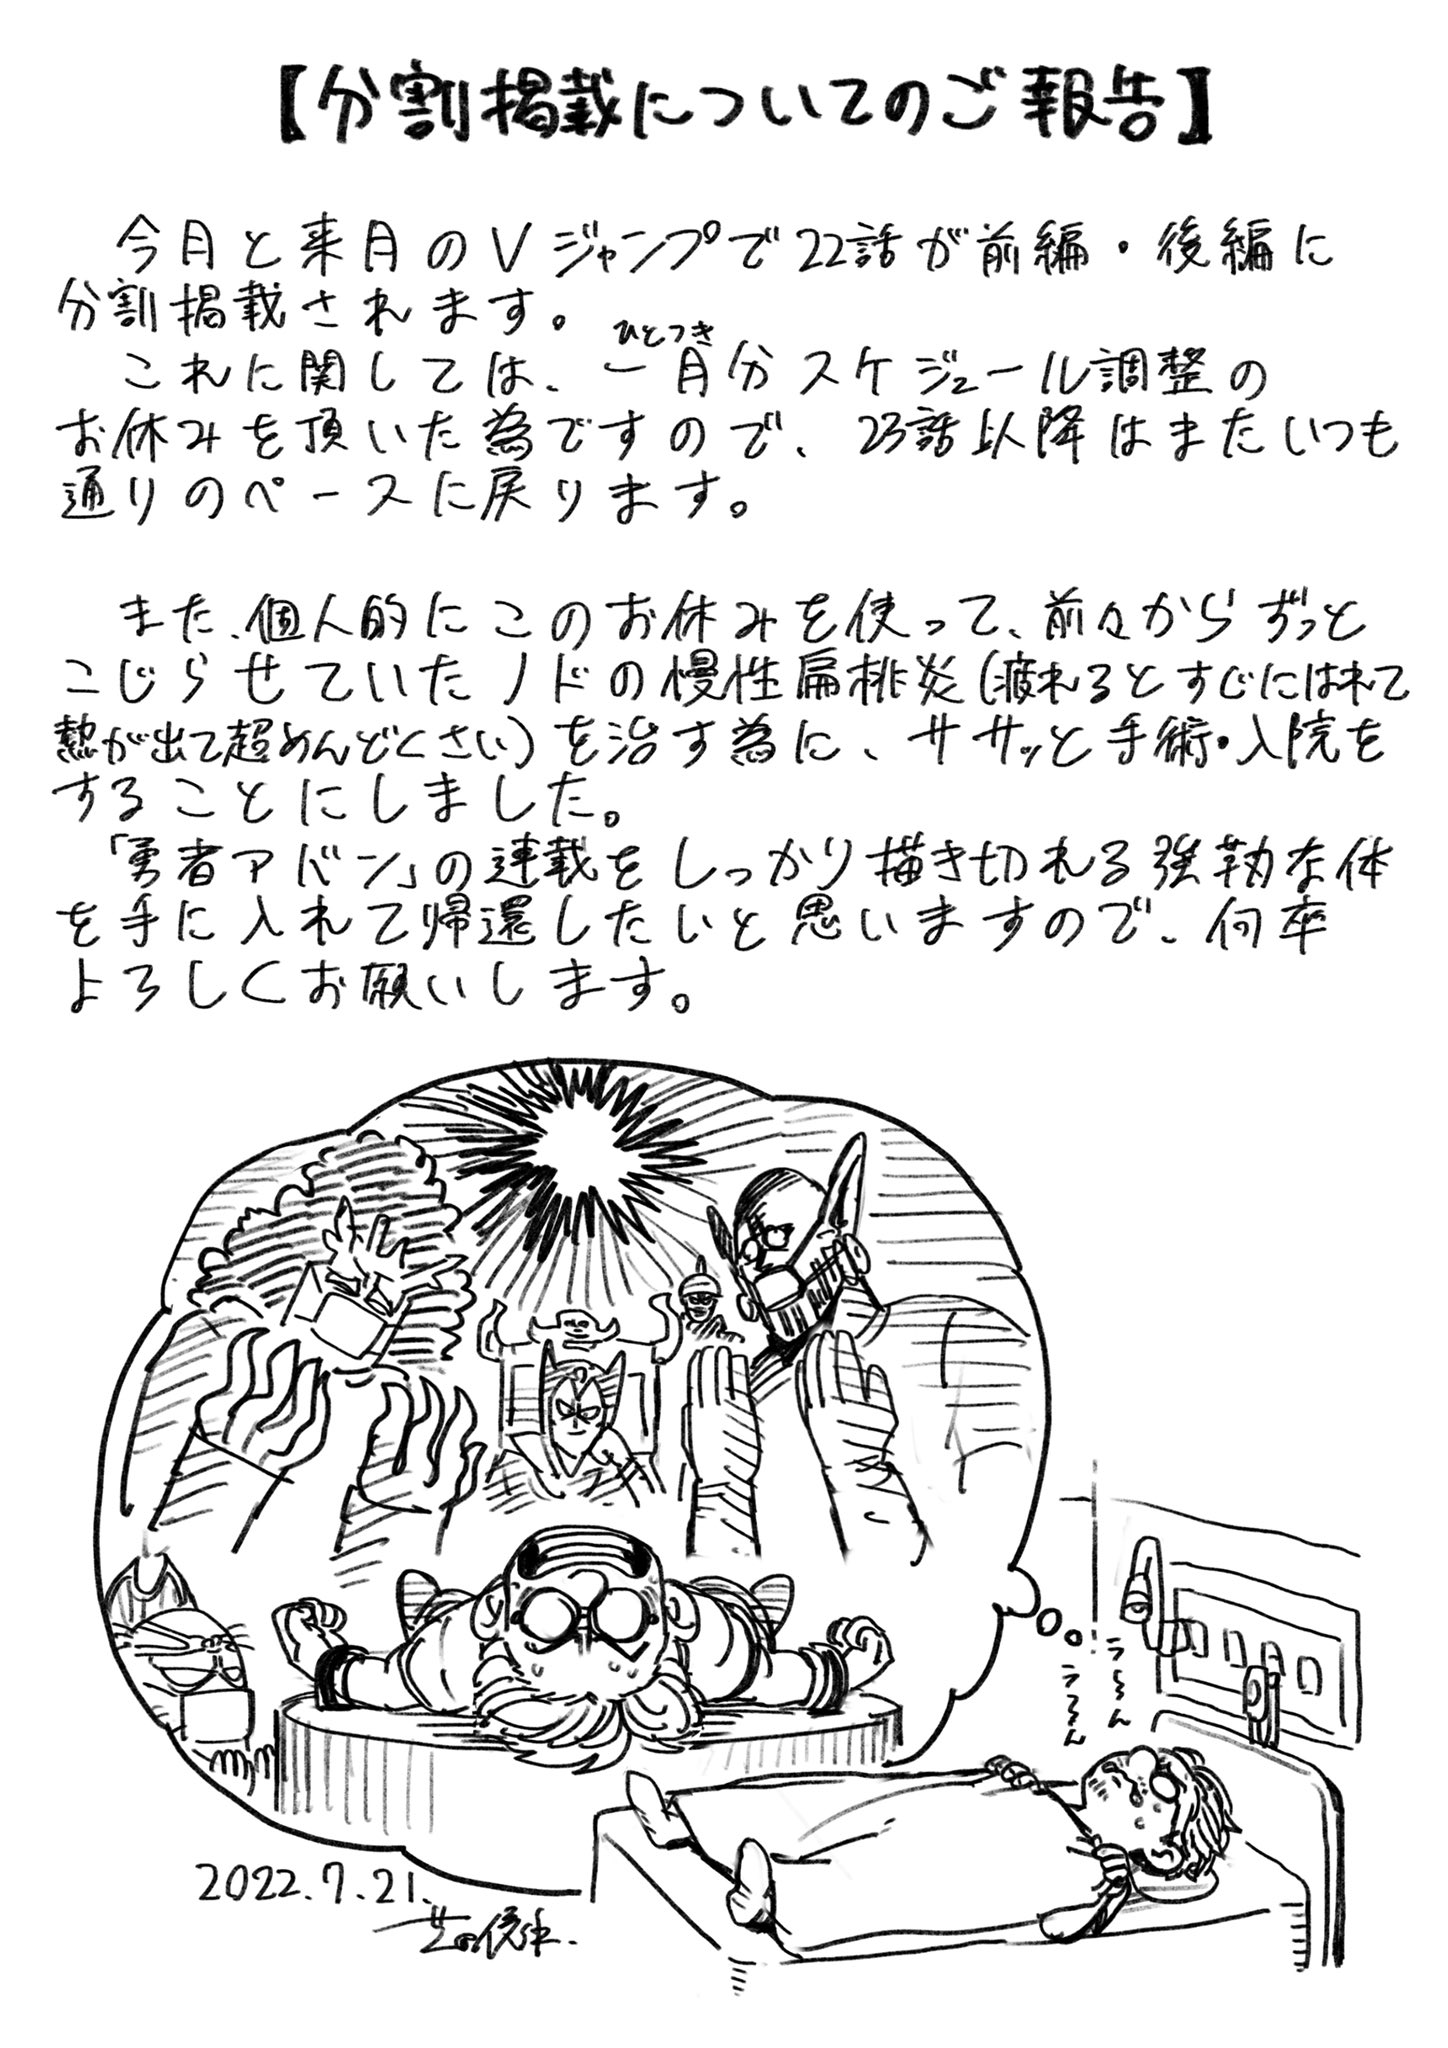 【分割掲載についてのご報告】
今月と来月のVジャンプで22話が前編・後編に
分割掲載されます。
ひとつき
これに関しては、一月分スケジュール調整の
お休みを頂いた為ですので、23話以降はまたいつも
通りのペースに戻ります。
また、個人的にこのお休みを使って、前々からずっと
こじらせていたノドの慢性扁桃炎(疲れるとすぐにはれて
熱が出て超めんどくさい)を治す為に、ササッと手術・入院を
することにしました。
「勇者アバン」の連載をしっかり描き切れる強靭な体
を手に入れて帰還したいと思いますので、何卒
よろしくお願いします。
う〜ん
うるん
2022.7.21.
芝田優作.